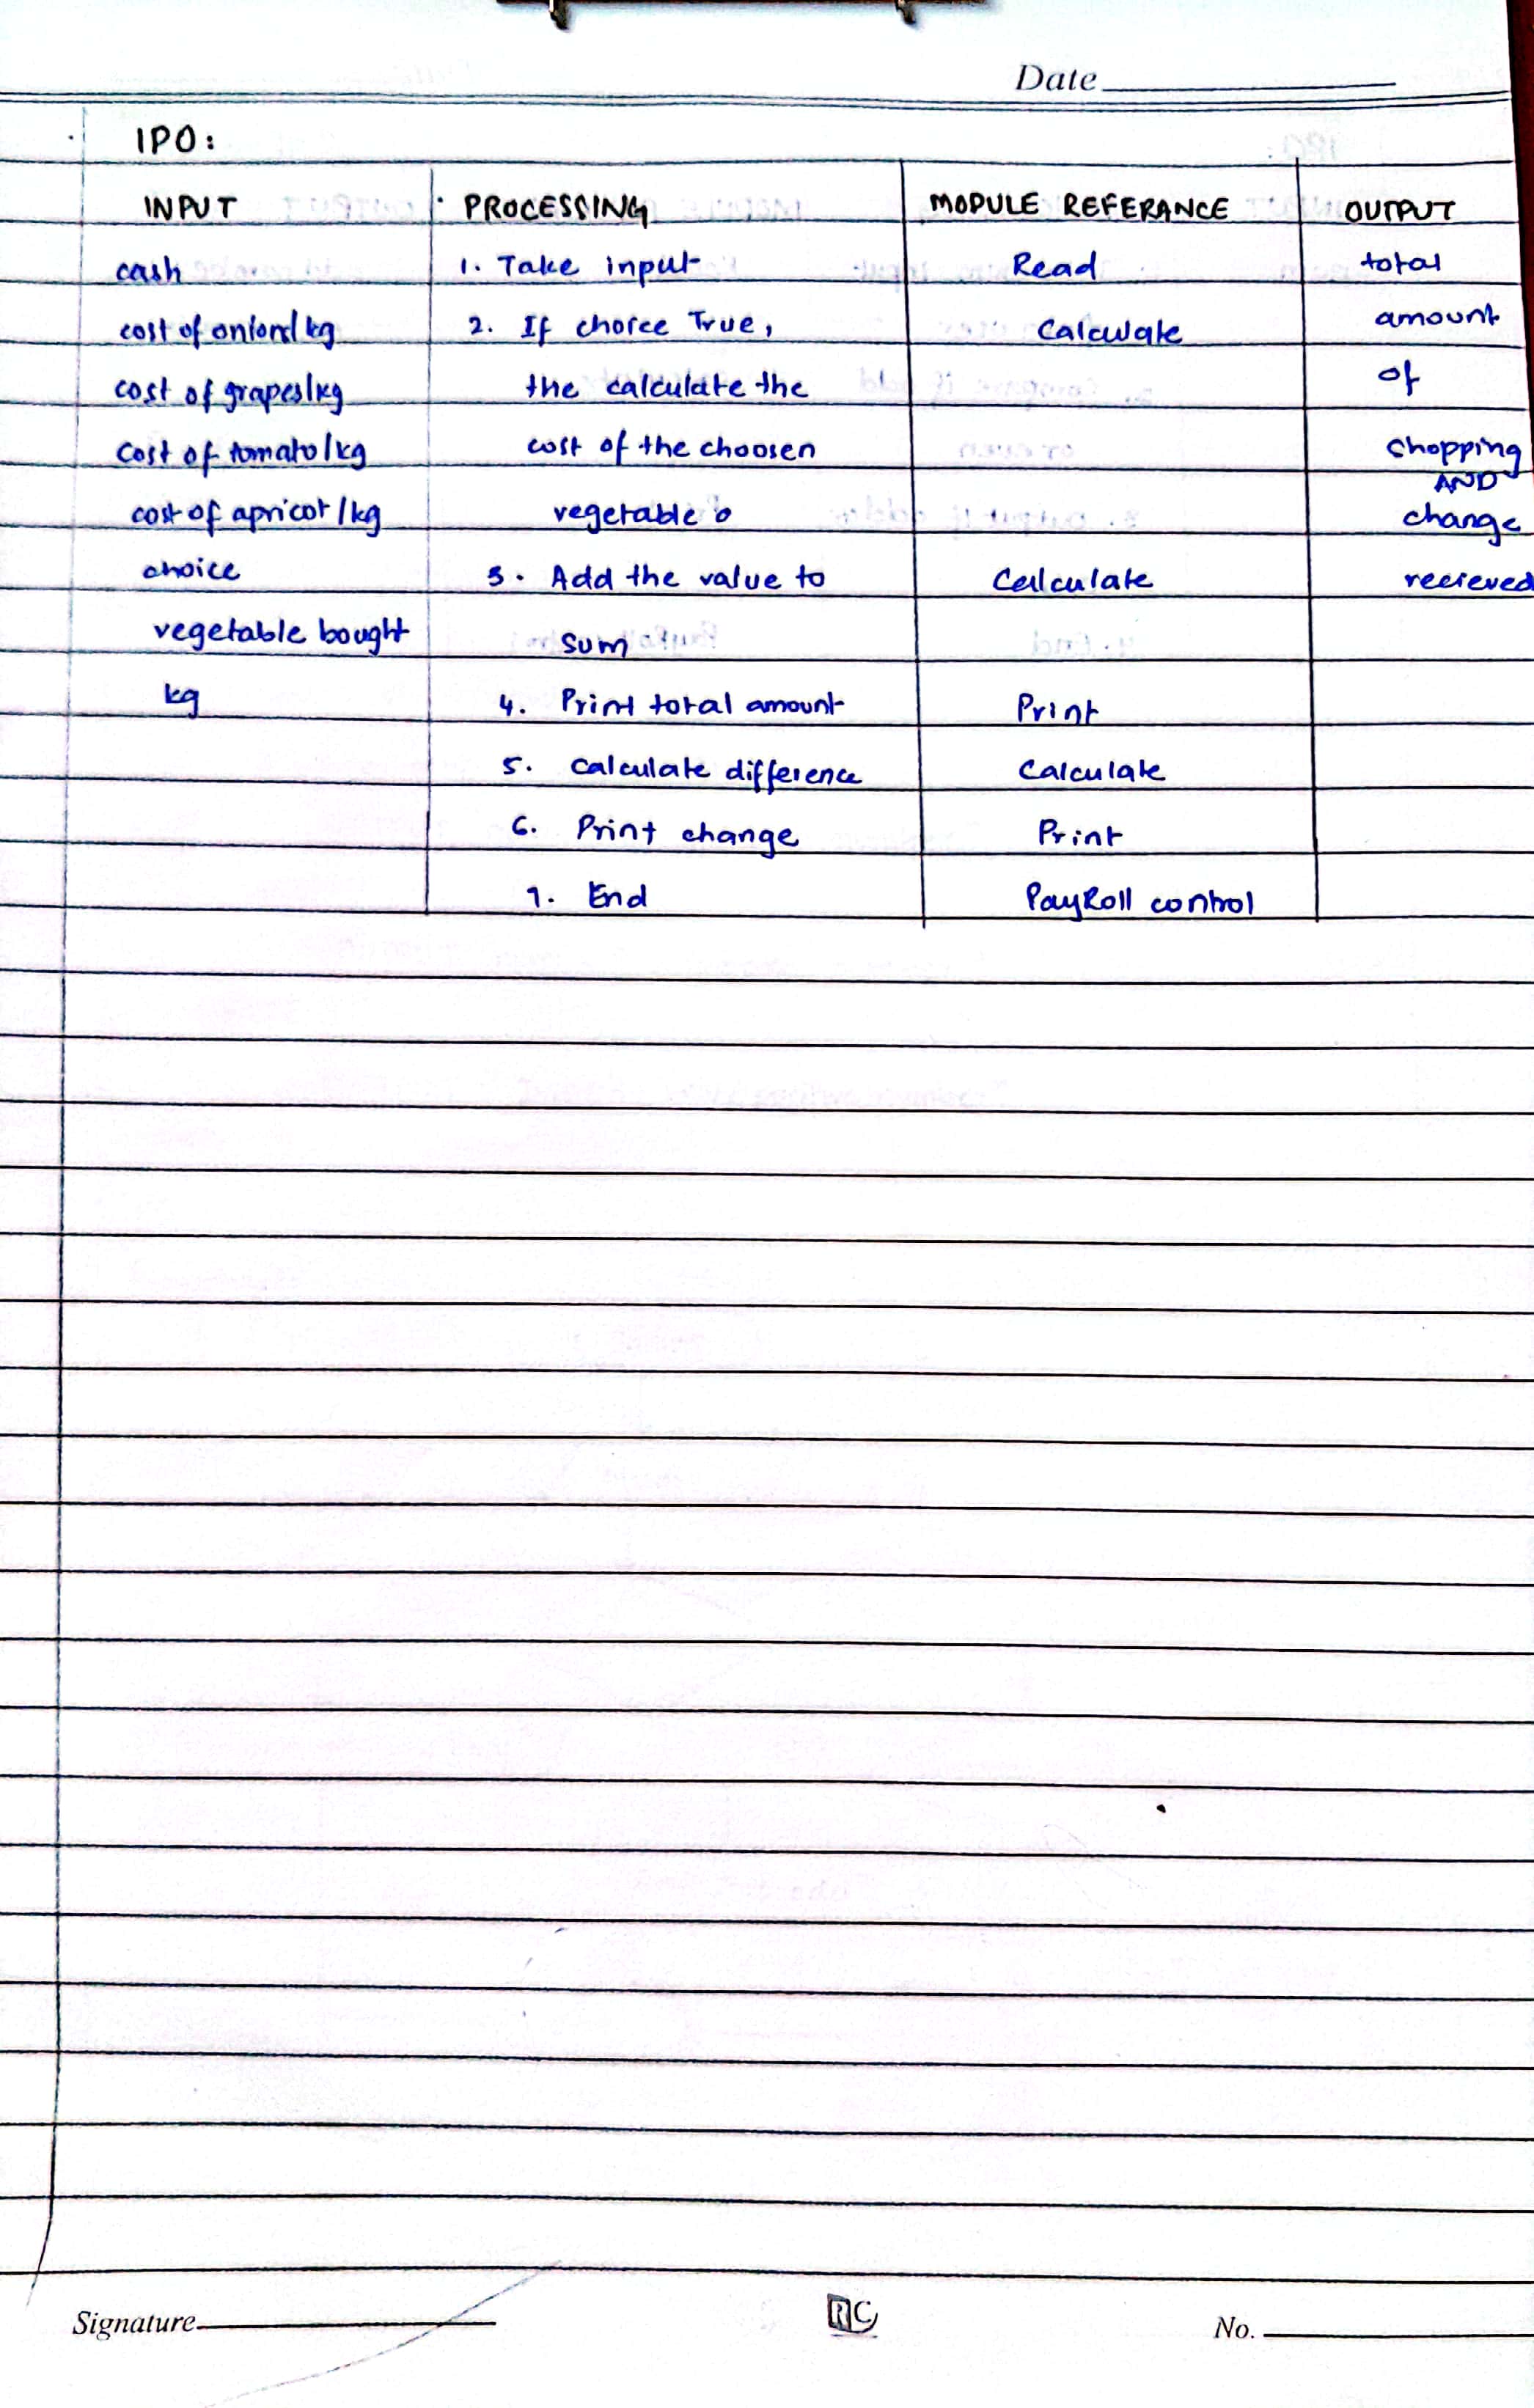 Date
IPO:
INPUT PROCESSING MODULE REFERANCE OUTPUT
cash 1. Take input Read total
cost of oniond/kg 2. If choice True, Calculate amount
cost of grapes/kg the calculate the of
cost of tomato/kg cost of the choosen shopping
AND
cost of apricot/kg vegetable change
choice 3. Add the value to Calculate recieved
vegetable bought sum
kg 4. Print total amount Print
5. calculate difference Calculate
6. Print change Print
7. End PayRoll control
Signature RC No.